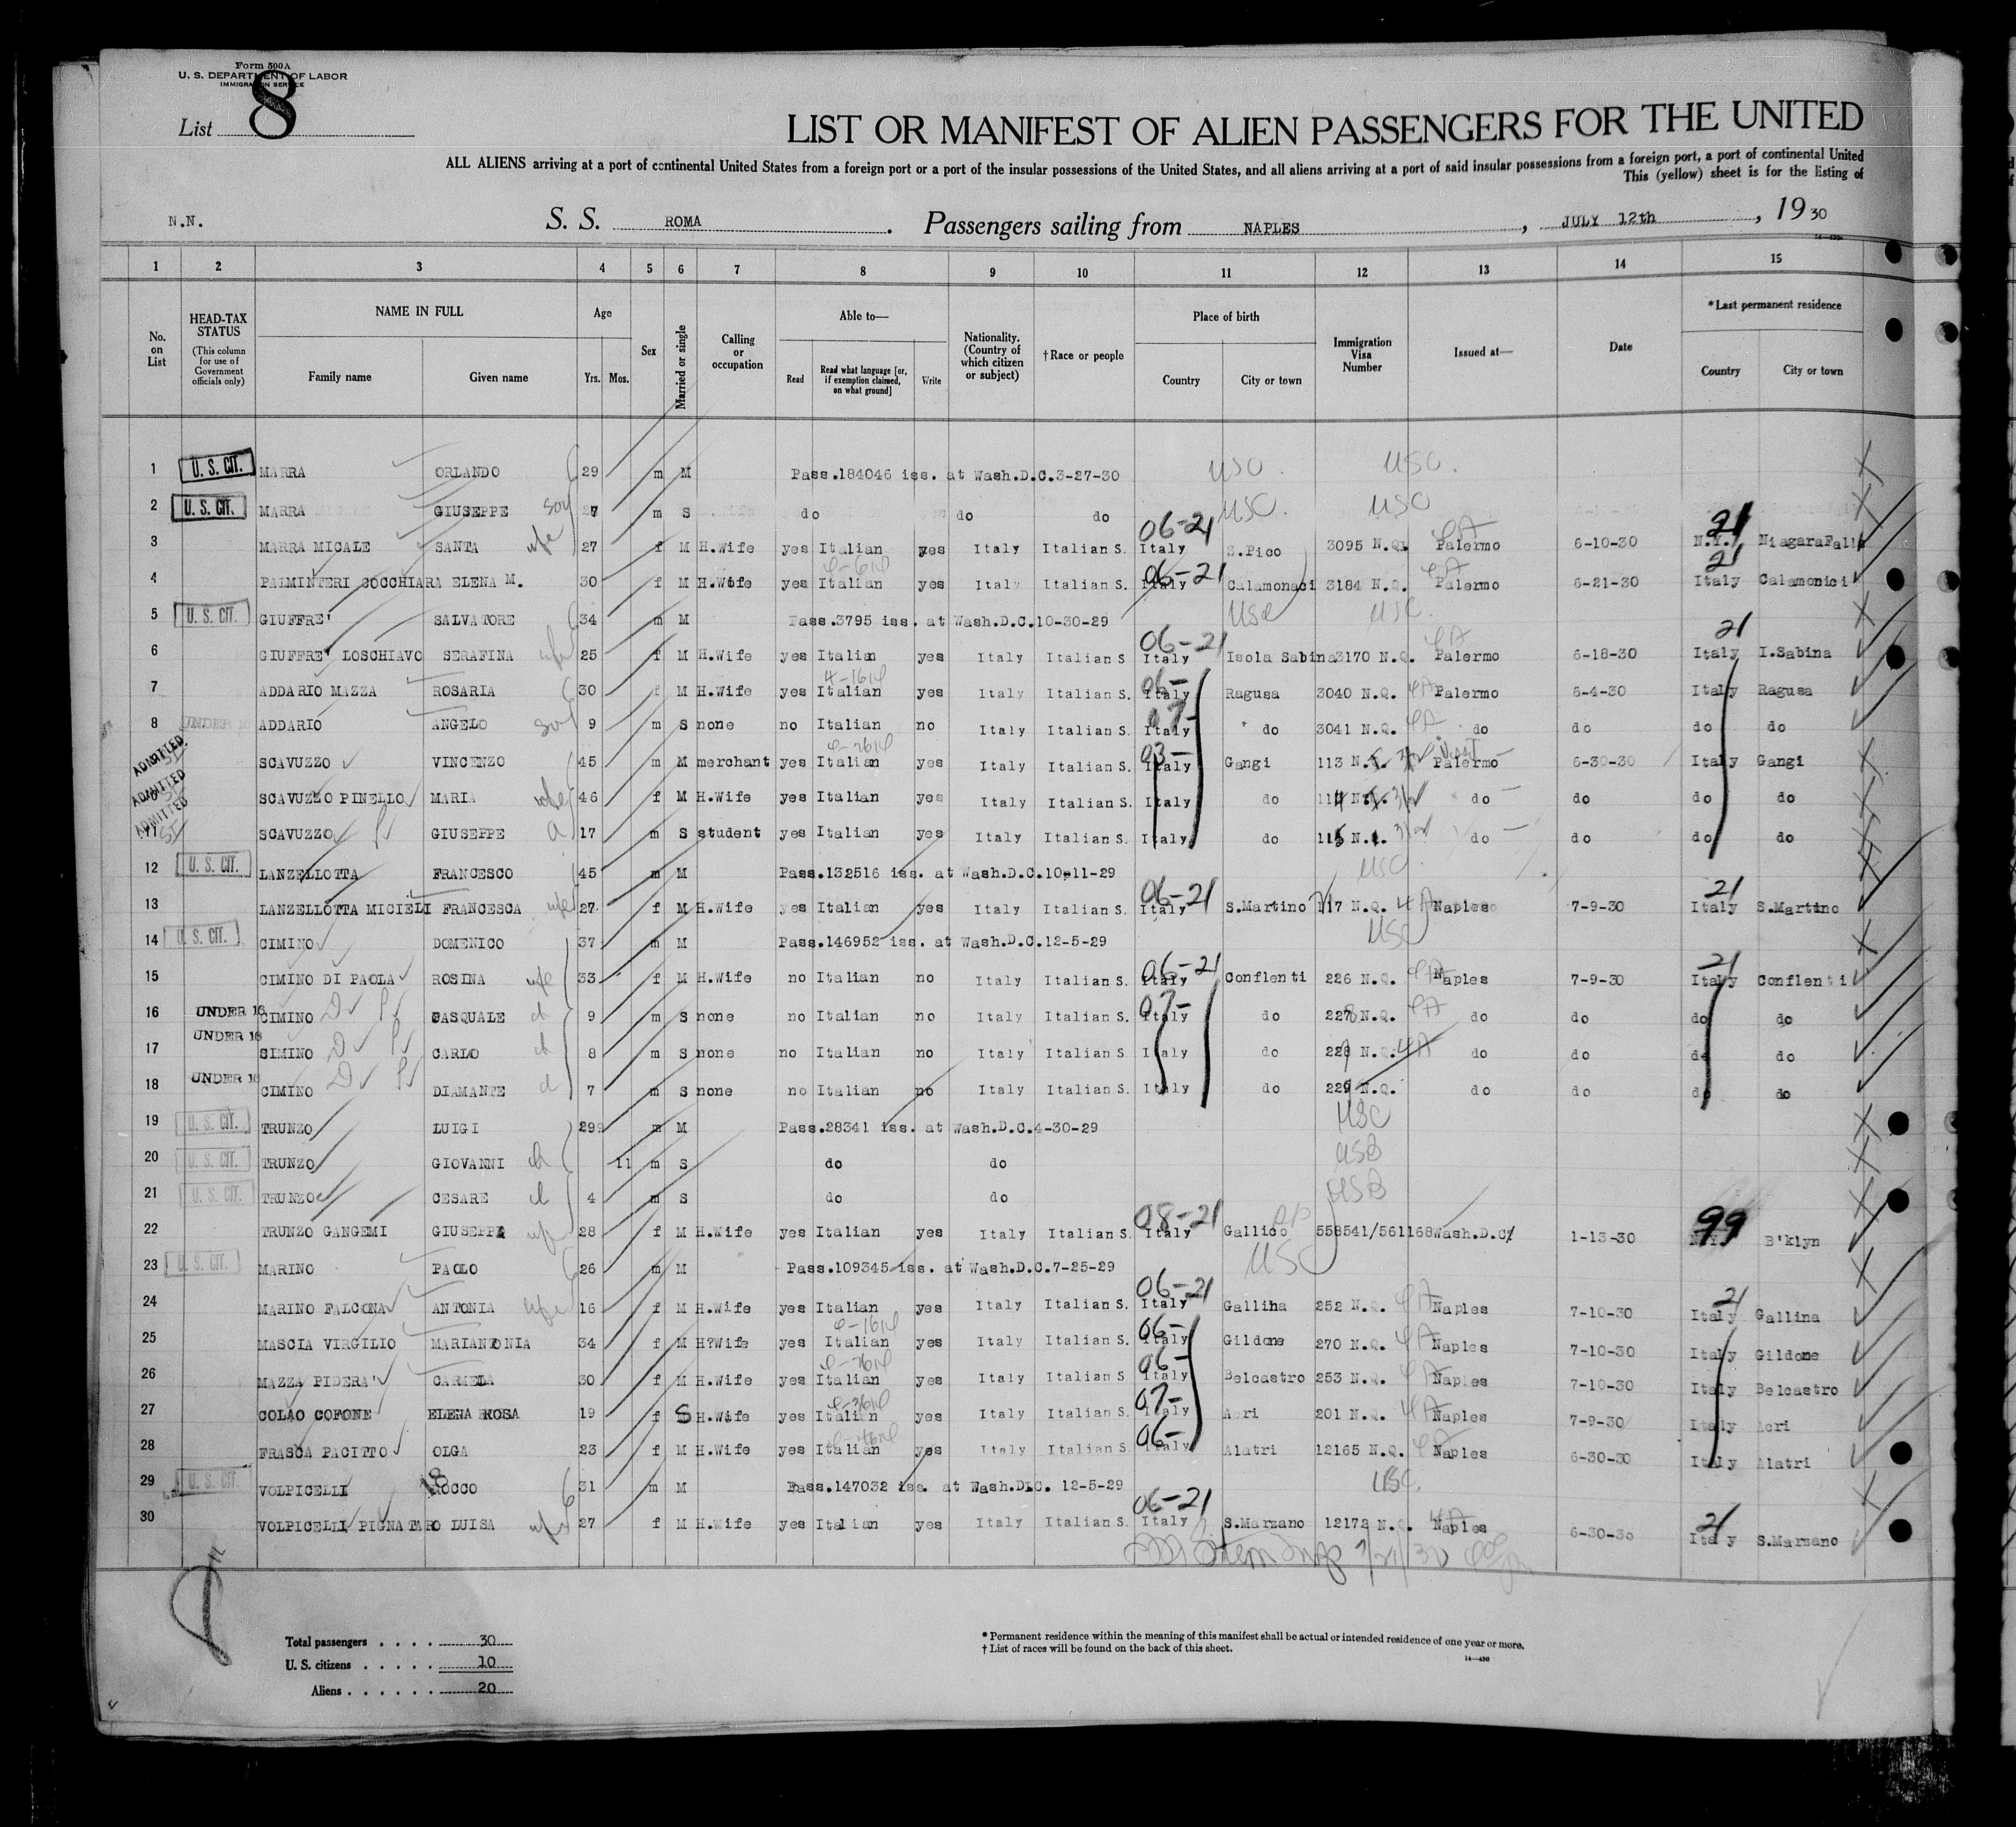 Form 500A
U. S. DEPARTMENT OF LABOR
IMMIGRATION SERVICE
List 8
LIST OR MANIFEST OF ALIEN PASSENGERS FOR THE UNITED
ALL ALIENS arriving at a port of continental United States from a foreign port or a port of the insular possessions of the United States, and all aliens arriving at a port of said insular possessions from a foreign port, a port of continental United
This (yellow) sheet is for the listing of
N.N. S. S. ROMA. Passengers sailing from NAPLES, JULY 12th, 1930
1 2 3 4 5 6 7 8 9 10 11 12 13 14 15
No. on List
HEAD-TAX STATUS (This column for use of Government officials only)
NAME IN FULL
Family name Given name
Age
Yrs. Mos.
Sex
Married or single
Calling or occupation
Able to—
Read Read what language [or, if exemption claimed, on what ground] Write
Nationality. (Country of which citizen or subject)
†Race or people
Place of birth
Country City or town
Immigration Visa Number
Issued at—
Date
*Last permanent residence
Country City or town
1 U. S. CIT. MARRA ORLANDO 29 m M Pass.184046 iss. at Wash.D.C.3-27-30 USC. USC.
2 U. S. CIT. MARRA GIUSEPPE son 7 m S do do do USC. USC
3 MARRA MICALE SANTA wfe 27 f M H.Wife yes Italian yes Italy Italian S. 06-21 Italy S.Pico 3095 N.Q. Palermo 6-10-30 21 N.Y. NiagaraFalls
4 PALMINTERI COCCHIARA ELENA M. 30 f M H.Wife yes Italian yes Italy Italian S. 06-21 Italy Calamonaci 3184 N.Q. Palermo 6-21-30 21 Italy Calamonici
5 U. S. CIT. GIUFFRE' SALVATORE 34 m M Pass.3795 iss. at Wash.D.C.10-30-29 USC USC.
6 GIUFFRE' LOSCHIAVO SERAFINA wfe 25 f M H.Wife yes Italian yes Italy Italian S 06-21 Italy Isola Sabina 3170 N.Q. Palermo 6-18-30 21 Italy I.Sabina
7 ADDARIO MAZZA ROSARIA 30 f M H.Wife yes Italian yes Italy Italian S. 06- Italy Ragusa 3040 N.Q. Palermo 6-4-30 Italy Ragusa
8 UNDER 16 ADDARIO ANGELO son 9 m S none no Italian no Italy Italian S. 07- Italy do 3041 N.Q. do do do do
ADMITTED SCAVUZZO VINCENZO 45 m M merchant yes Italian yes Italy Italian S. 03- Italy Gangi 113 Palermo 6-30-30 Italy Gangi
ADMITTED SCAVUZZO PINELLO MARIA wfe 46 f M H.Wife yes Italian yes Italy Italian S. Italy do 114 do do do do
ADMITTED 11 SCAVUZZO GIUSEPPE 17 m S student yes Italian yes Italy Italian S. Italy do 115 do do do do
12 U. S. CIT. LANZELLOTTA FRANCESCO 45 m M Pass.132516 iss. at Wash.D.C.10-11-29 USC
13 LANZELLOTTA MICIELI FRANCESCA wfe 27 f M H.Wife yes Italian yes Italy Italian S. 06-21 Italy S.Martino 117 N.Q. Naples 7-9-30 21 Italy S.Martino
14 U. S. CIT. CIMINO DOMENICO 37 m M Pass.146952 iss. at Wash.D.C.12-5-29 USC
15 CIMINO DI PAOLA ROSINA wfe 33 f M H.Wife no Italian no Italy Italian S. 06-21 Italy Conflenti 226 N.Q. Naples 7-9-30 21 Italy Conflenti
16 UNDER 16 CIMINO PASQUALE 9 m S none no Italian no Italy Italian S. 07- Italy do 228 N.Q. do do do do
17 UNDER 16 SIMINO CARLO 8 m S none no Italian no Italy Italian S. Italy do N.Q. 4A do do do do
18 UNDER 16 CIMINO DIAMANTE 7 m S none no Italian no Italy Italian S. Italy do 229 N.Q. do do do do
19 U. S. CIT. TRUNZO LUIGI 29 m M Pass.28341 iss. at Wash.D.C.4-30-29 USC
20 U. S. CIT. TRUNZO GIOVANNI ch 11 m S do do USB
21 U. S. CIT. TRUNZO CESARE 4 m S do do USB
22 TRUNZO GANGEMI GIUSEPPA wfe 28 f M H.Wife yes Italian yes Italy Italian S. 08-21 Italy Gallico 558541/561168 Wash.D.C. 1-13-30 99 N.Y. B'klyn
23 U. S. CIT. MARINO PAOLO 26 m M Pass.109345 iss. at Wash.D.C.7-25-29 USC
24 MARINO FALCONA ANTONIA wfe 16 f M H.Wife yes Italian yes Italy Italian S. 06-21 Italy Galliha 252 N.Q. Naples 7-10-30 21 Italy Gallina
25 MASCIA VIRGILIO MARIANTONIA 34 f M H?Wife yes Italian yes Italy Italian S. 06- Italy Gildone 270 N.Q. Naples 7-10-30 Italy Gildone
26 MAZZA PIDERA' CARMELA 30 f M H.Wife yes Italian yes Italy Italian S 06- Italy Belcastro 253 N.Q. Naples 7-10-30 Italy Belcastro
27 COLAO COFONE ELENA ROSA 19 f S H.Wife yes Italian yes Italy Italian S. 07- Italy Acri 201 N.Q. 4A Naples 7-9-30 Italy Acri
28 FRASCA PACITTO OLGA 23 f M H.Wife yes Italian yes Italy Italian S. 06- Italy Alatri 12165 N.Q. Naples 6-30-30 Italy Alatri
29 U. S. CIT. VOLPICELLI ROCCO 31 m M Pass.147032 iss. at Wash.D.C. 12-5-29 USC.
30 VOLPICELLI PIGNATARO LUISA wfe 27 f M H.Wife yes Italian yes Italy Italian S. 06-21 Italy S.Marzano 12172 N.Q. Naples 6-30-30 21 Italy S.Marsano
Total passengers . . . . 30
U. S. citizens . . . . . 10
Aliens . . . . . . 20
* Permanent residence within the meaning of this manifest shall be actual or intended residence of one year or more.
† List of races will be found on the back of this sheet.
14—430